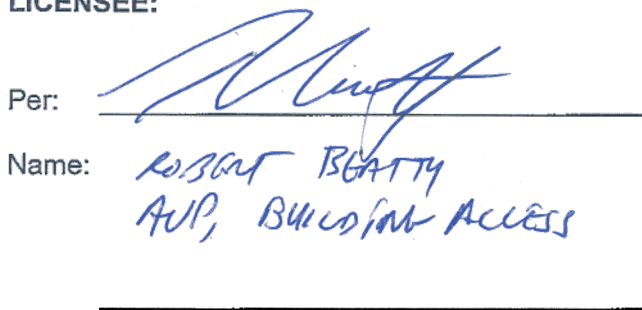 LICENSEE:
Per:
Name: ROBERT BEATTY
AVP, BUILDING ACCESS